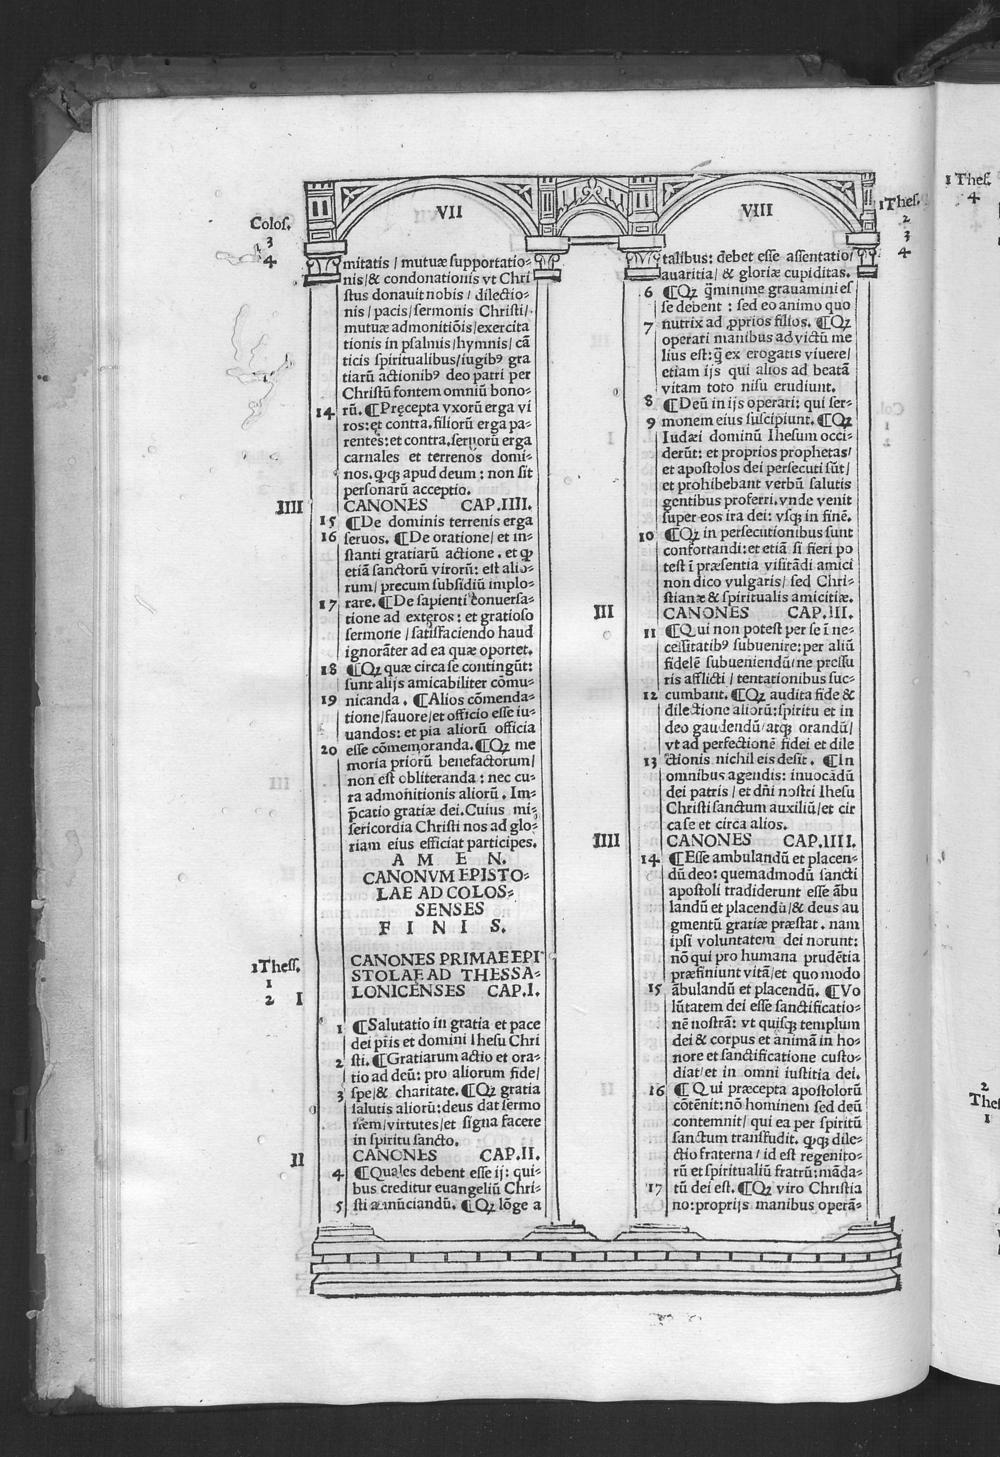 VII
Coloſ.
3
4
mitatis / mutuæ ſupportatio⸗
nis / & condonationis vt Chri
ſtus donauit nobis / dilectio⸗
nis / pacis / ſermonis Chriſti /
mutuæ admonitiõis / exercita
tionis in pſalmis / hymnis / cã
ticis ſpiritualibus / iugibꝰ gra
tiarũ actionibꝰ deo patri per
Chriſtũ fontem omniũ bono⸗
14 rũ. ¶ Pręcepta vxorũ erga vi
ros: et contra. filiorũ erga pa⸗
rentes: et contra. ſeruorũ erga
carnales et terrenos domi⸗
nos. ꝙqꝫ apud deum : non ſit
perſonarũ acceptio.
IIII CANONES CAP.IIII.
15 ¶ De dominis terrenis erga
16 ſeruos. ¶ De oratione / et in⸗
ſtanti gratiarũ actione . et ꝙ
etiã ſanctorũ virorũ: eſt alio⸗
rum / precum ſubſidiũ implo⸗
17 rare. ¶ De ſapienti conuerſa⸗
tione ad exteros : et gratioſo
ſermone / ſatiſfaciendo haud
ignorãter ad ea quæ oportet.
18 ¶ Qꝫ quæ circa ſe contingũt:
ſunt alijs amicabiliter cõmu⸗
19 nicanda . ¶ Alios cõmenda⸗
tione / fauore / et officio eſſe iu⸗
uandos: et pia aliorũ officia
20 eſſe cõmemoranda. ¶ Qꝫ me
moria priorũ benefactorum /
non eſt obliteranda : nec cu⸗
ra admonitionis aliorũ . Im⸗
p̃catio gratiæ dei. Cuius mi⸗
ſericordia Chriſti nos ad glo⸗
riam eius efficiat participes.
A M E N.
CANONVM EPISTO⸗
LAE AD COLOS⸗
SENSES
F I N I S.
1 Theſſ.
1
2 I
CANONES PRIMAE EPI
STOLAE AD THESSA⸗
LONICENSES CAP.I.
1 ¶ Salutatio in gratia et pace
dei pr̃is et domini Iheſu Chri
2 ſti. ¶ Gratiarum actio et ora⸗
tio ad deũ: pro aliorum fide /
3 ſpe / & charitate. ¶ Qꝫ gratia
ſalutis aliorũ: deus dat ſermo
nẽm / virtutes / et ſigna facere
in ſpiritu ſancto.
II CANONES CAP.II.
4 ¶ Quales debent eſſe ij: qui⸗
bus creditur euangeliũ Chri⸗
5 ſti ãnũciandũ. ¶ Qꝫ lõge a
VIII
1 Theſ.
2
3
4
talibus: debet eſſe aſſentatio /
auaritia / & gloriæ cupiditas.
6 ¶ Qꝫ q̃ minime grauamini eſ
ſe debent : ſed eo animo quo
7 nutrix ad ꝓprios filios. ¶ Qꝫ
operari manibus ad victũ me
lius eſt: q̃ ex erogatis viuere /
etiam ijs qui alios ad beatã
vitam toto niſu erudiunt.
8 ¶ Deũ in ijs operari: qui ſer⸗
9 monem eius ſuſcipiunt. ¶ Qꝫ
Iudæi dominũ Iheſum occi⸗
derũt: et proprios prophetas /
et apoſtolos dei perſecuti ſũt /
et prohibebant verbũ ſalutis
gentibus proferri. vnde venit
ſuper eos ira dei: vſqꝫ in finẽ.
10 ¶ Qꝫ in perſecutionibus ſunt
confortandi: et etiã ſi fieri po
teſt ĩ præſentia viſitãdi amici
non dico vulgaris / ſed Chri⸗
ſtianæ & ſpiritualis amicitiæ.
III CANONES CAP.III.
11 ¶ Qui non poteſt per ſe ĩ ne⸗
ceſſitatibꝰ ſubuenire: per aliũ
fidelẽ ſubueniendũ / ne preſſu
ris afflicti / tentationibus ſuc⸗
12 cumbant. ¶ Qꝫ audita fide &
dilectione aliorũ: ſpiritu et in
deo gaudendũ / atqꝫ orandũ /
vt ad perfectionẽ fidei et dile
13 ctionis nichil eis deſit . ¶ In
omnibus agendis: inuocãdũ
dei patris / et dñi noſtri Iheſu
Chriſti ſanctum auxiliũ / et cir
ca ſe et circa alios.
IIII CANONES CAP.IIII.
14 ¶ Eſſe ambulandũ et placen⸗
dũ deo: quemadmodũ ſancti
apoſtoli tradiderunt eſſe ãbu
landũ et placendũ / & deus au
gmentũ gratiæ præſtat . nam
ipſi voluntatem dei norunt:
nõ qui pro humana prudẽtia
præfiniunt vitã / et quomodo
15 ãbulandũ et placendũ. ¶ Vo
lũtatem dei eſſe ſanctificatio⸗
nẽ noſtrã: vt quiſqꝫ templum
dei & corpus et animã in ho⸗
nore et ſanctificatione cuſto⸗
diat / et in omni iuſtitia dei.
16 ¶ Qui præcepta apoſtolorũ
cõtẽnit: nõ hominem ſed deũ
contemnit / qui ea per ſpiritũ
ſanctum tranſfudit. ꝙqꝫ dile⸗
ctio fraterna / id eſt regenito⸗
rũ et ſpiritualiũ fratrũ: mãda⸗
17 tũ dei eſt. ¶ Qꝫ viro Chriſtia
no: proprijs manibus operã⸗
1 Theſ.
4
2
1